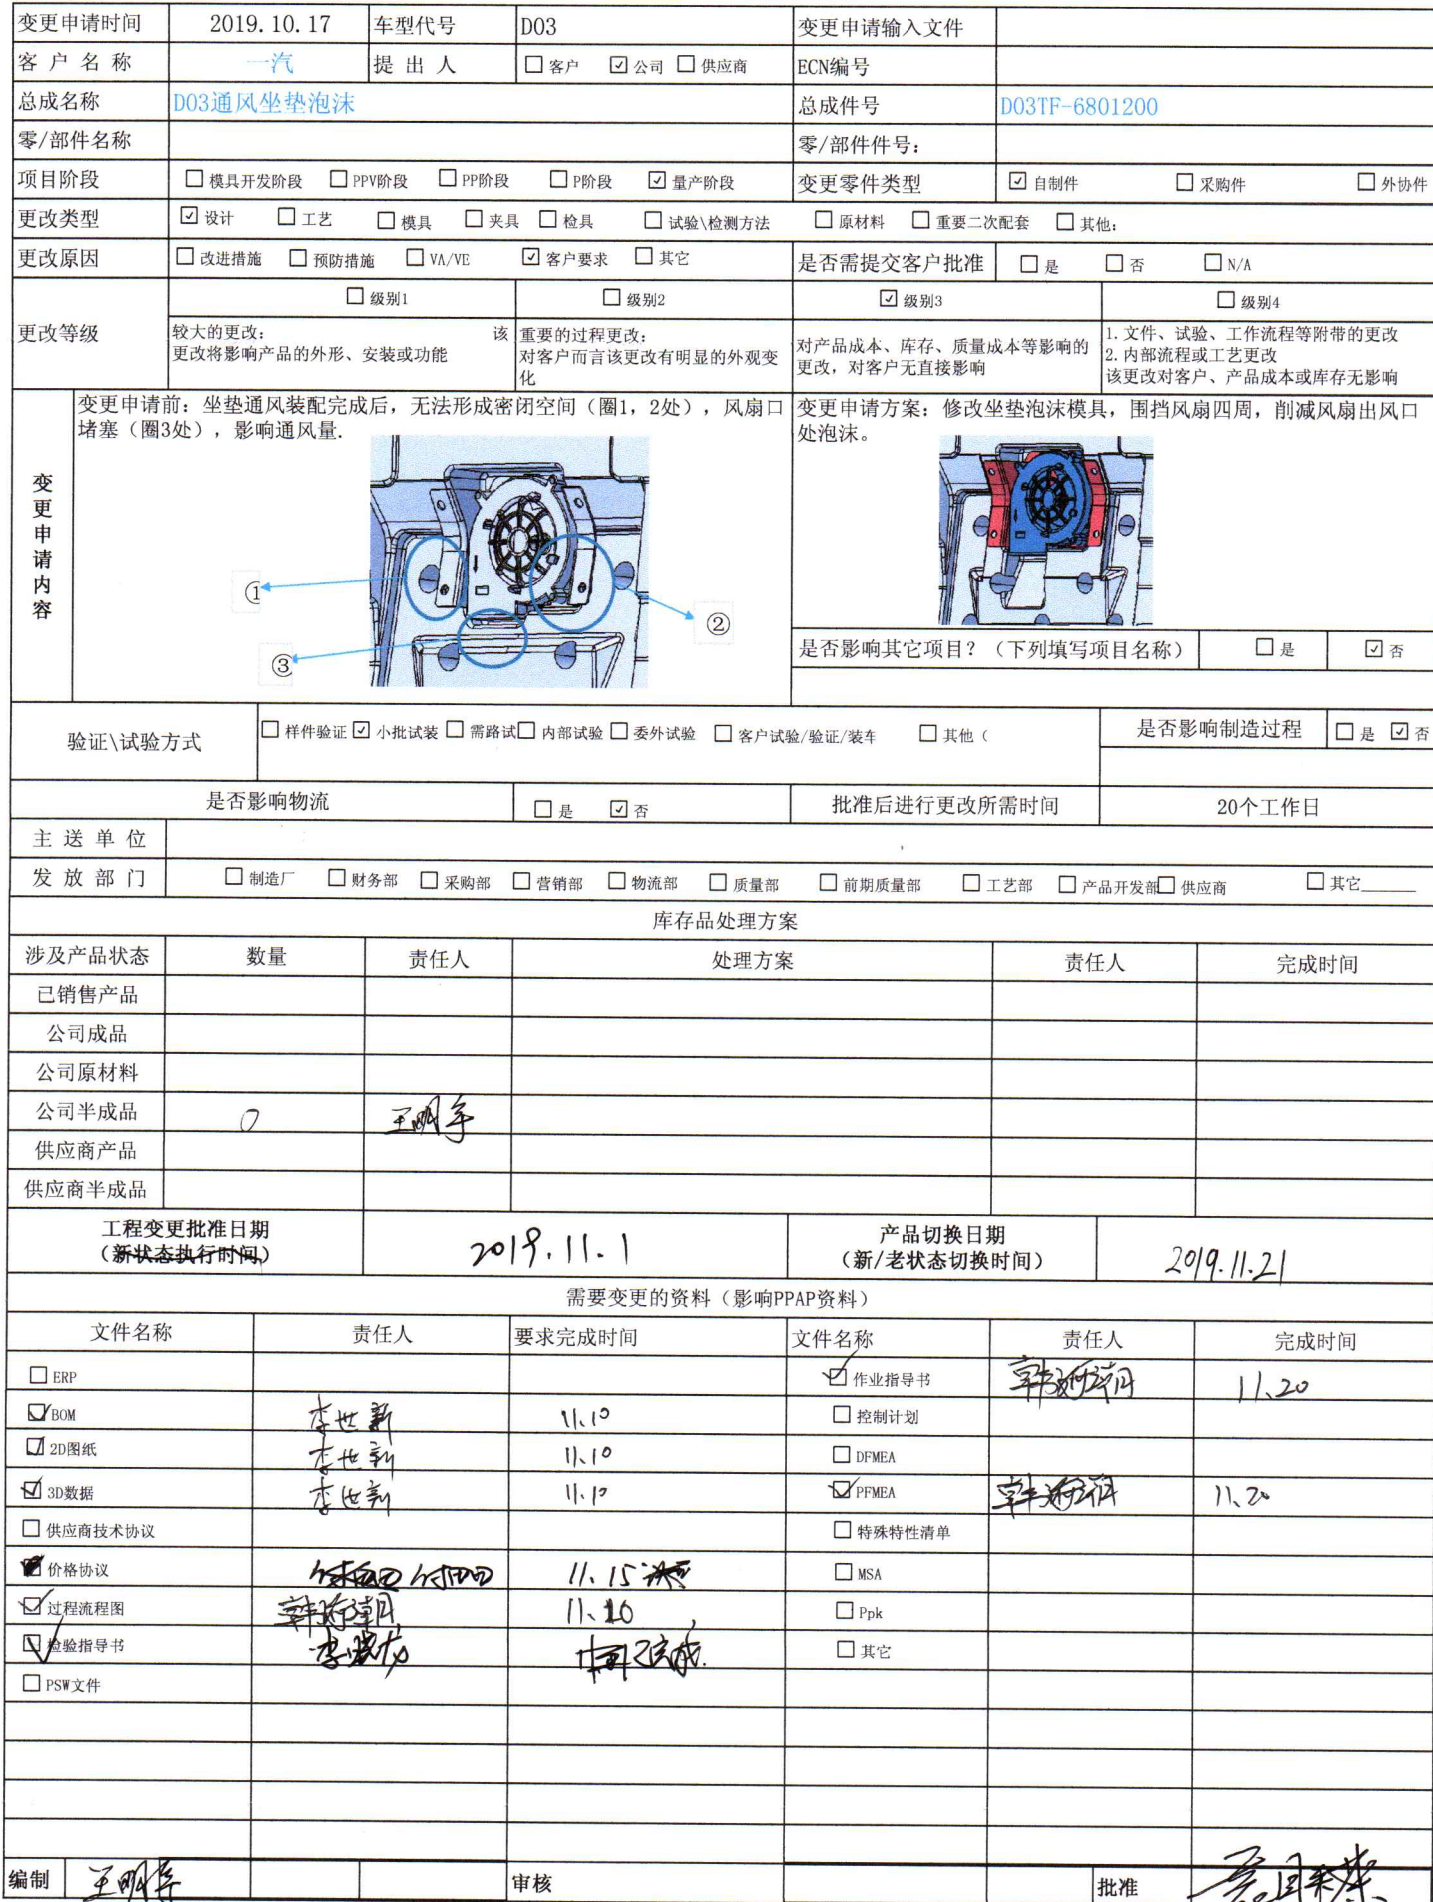 变更申请时间 2019.10.17 车型代号 D03 变更申请输入文件
客户名称 一汽 提出人 □客户 ☑公司 □供应商 ECN编号
总成名称 D03通风坐垫泡沫 总成件号 D03TF-6801200
零/部件名称 零/部件件号:
项目阶段 □模具开发阶段 □PPV阶段 □PP阶段 □P阶段 ☑量产阶段 变更零件类型 ☑自制件 □采购件 □外协件
更改类型 ☑设计 □工艺 □模具 □夹具 □检具 □试验\检测方法 □原材料 □重要二次配套 □其他:
更改原因 □改进措施 □预防措施 □VA/VE ☑客户要求 □其它 是否需提交客户批准 □是 □否 □N/A
更改等级 □级别1 □级别2 ☑级别3 □级别4
较大的更改: 该
更改将影响产品的外形、安装或功能
重要的过程更改:
对客户而言该更改有明显的外观变
化
对产品成本、库存、质量成本等影响的
更改，对客户无直接影响
1.文件、试验、工作流程等附带的更改
2.内部流程或工艺更改
该更改对客户、产品成本或库存无影响
变更申请内容
变更申请前：坐垫通风装配完成后，无法形成密闭空间（圈1，2处），风扇口
堵塞（圈3处），影响通风量.
①
②
③
变更申请方案：修改坐垫泡沫模具，围挡风扇四周，削减风扇出风口
处泡沫。
是否影响其它项目？（下列填写项目名称） □是 ☑否
验证\试验方式 □样件验证 ☑小批试装 □需路试 □内部试验 □委外试验 □客户试验/验证/装车 □其他（ 是否影响制造过程 □是 ☑否
是否影响物流 □是 ☑否 批准后进行更改所需时间 20个工作日
主送单位
发放部门 □制造厂 □财务部 □采购部 □营销部 □物流部 □质量部 □前期质量部 □工艺部 □产品开发部 □供应商 □其它
库存品处理方案
涉及产品状态 数量 责任人 处理方案 责任人 完成时间
已销售产品
公司成品
公司原材料
公司半成品 0
供应商产品
供应商半成品
工程变更批准日期 2019.11.1 产品切换日期 2019.11.21
（新状态执行时间） （新/老状态切换时间）
需要变更的资料（影响PPAP资料）
文件名称 责任人 要求完成时间 文件名称 责任人 完成时间
□ERP ☑作业指导书 11.20
☑BOM 李世新 11.10 □控制计划
☑2D图纸 李世新 11.10 □DFMEA
☑3D数据 李世新 11.10 ☑PFMEA 11.20
□供应商技术协议 □特殊特性清单
价格协议 11.15 □MSA
☑过程流程图 □Ppk
☑检验指导书 已完成. □其它
□PSW文件
编制 审核 批准